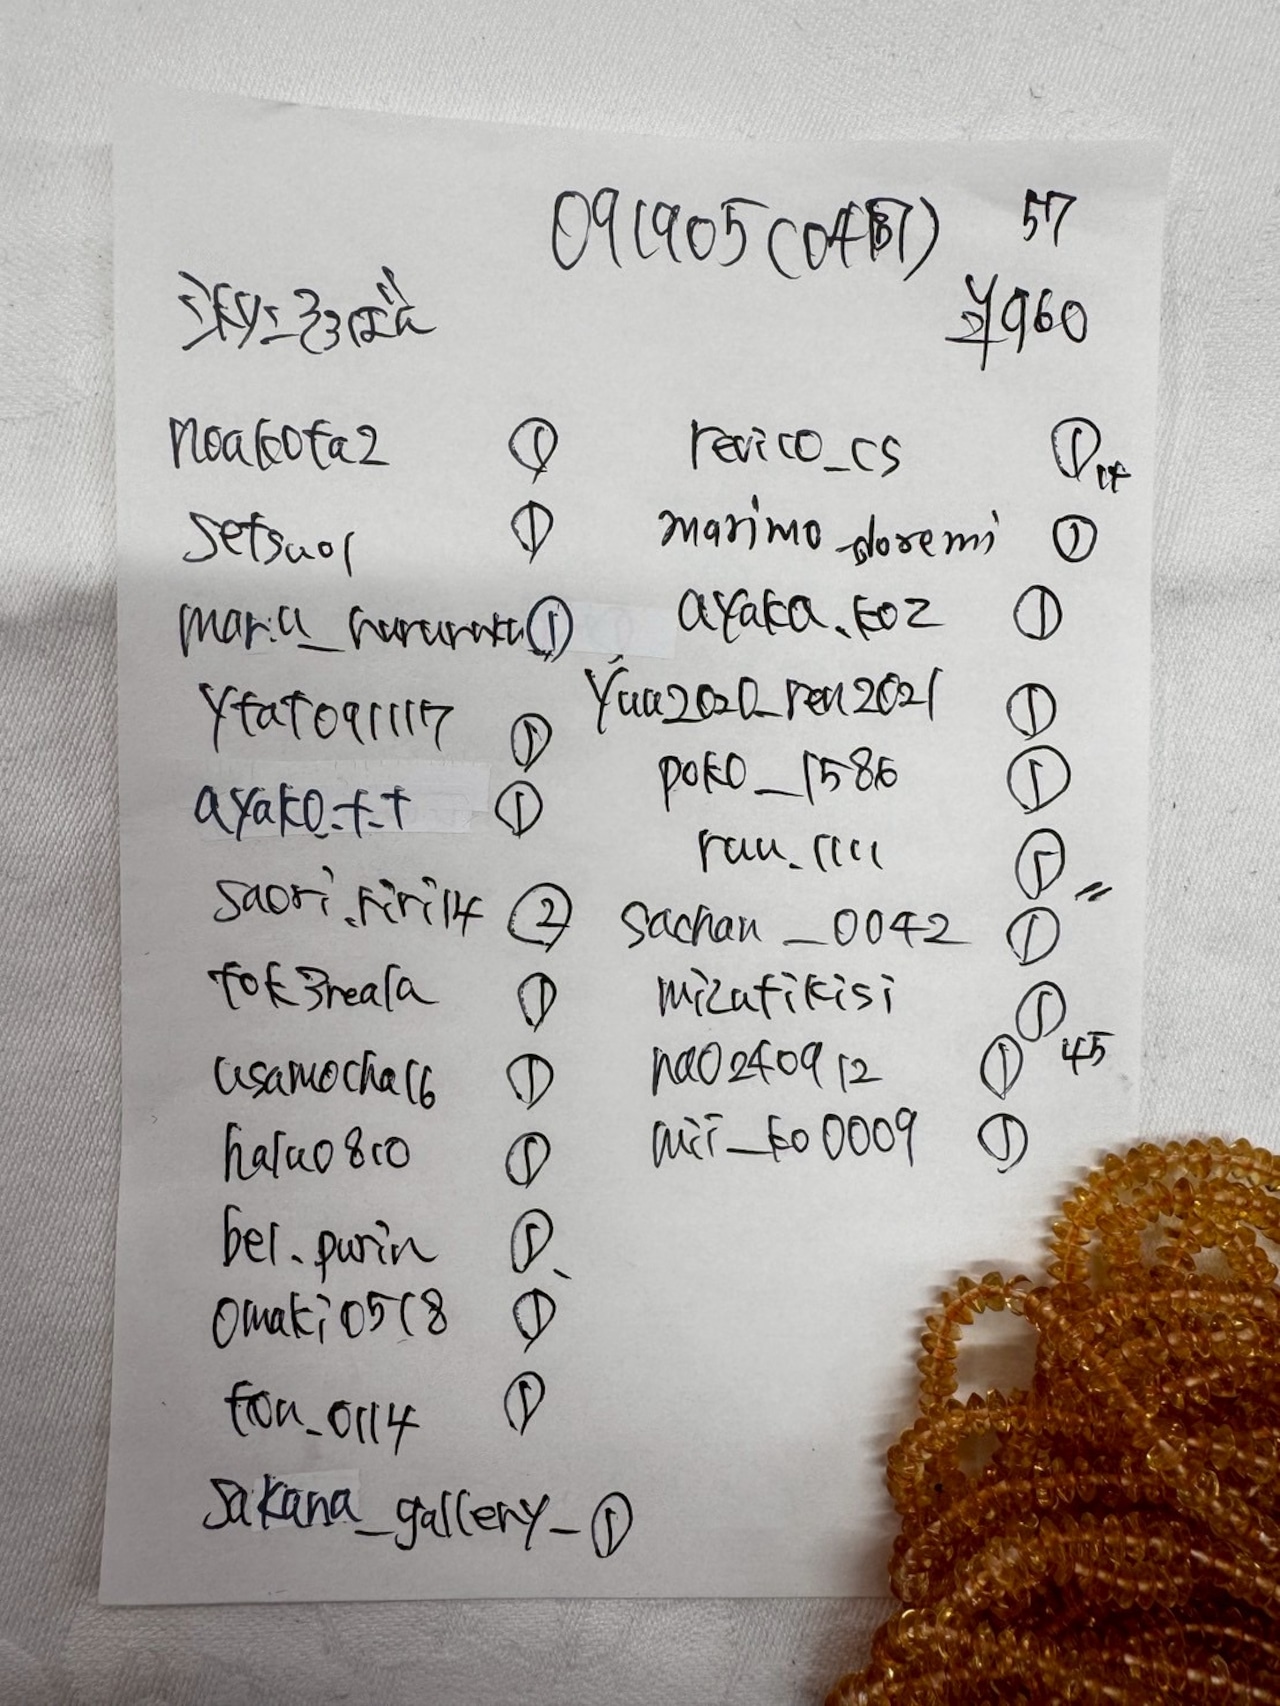 091905 (0457) 57
¥960
noakota2 ①
setsuo1 ①
maria_hururuku ①
ytat091117 ①
ayako_t_t ①
saori.riri14 ②
tok3reala ①
usamocha16 ①
halu0810 ①
bel.purin ①
omaki0518 ①
tou_0114 ①
sakana_gallery_ ①
revico_cs ① 14
marimo_doremi ①
ayaka.koz ①
yuu2020_ren2021 ①
poko_1586 ①
ruu.1111 ①
sachan_0042 ①
mizutikisi ①
45
nao240912 ①
mii_ko0009 ①